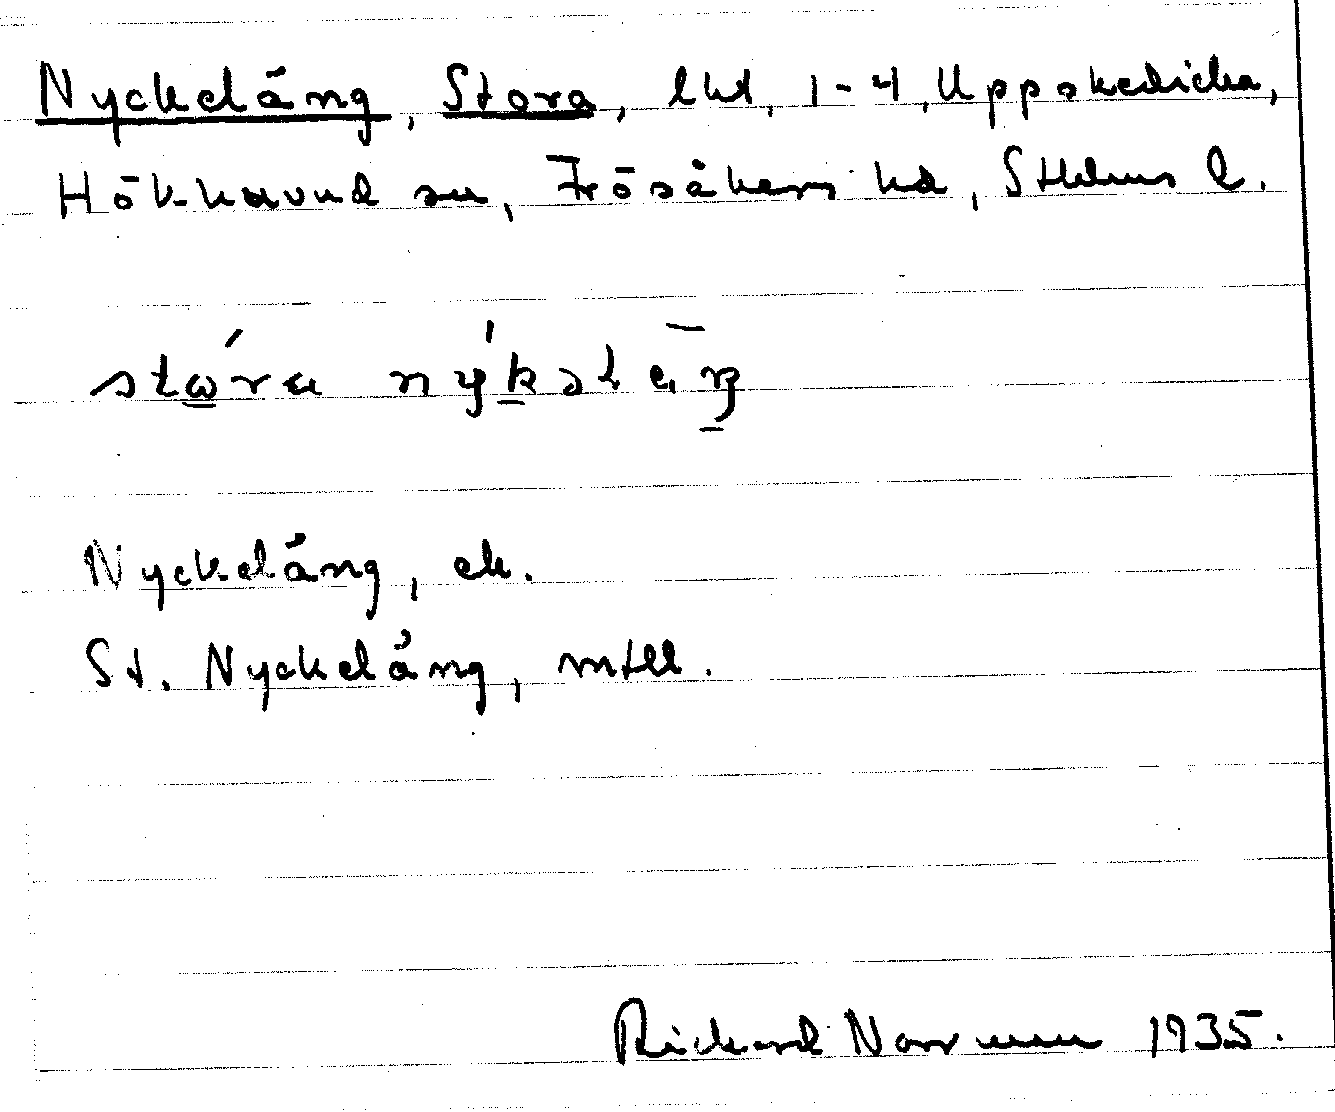 Nyckeläng, Stora, lht, 1-4, Uppskedicka,
Hökhuvud sn, Frösåkers hd, Sthlms l.
stώra nýkəlęŋ̄
Nyckeläng, ek.
St. Nyckeläng, mtll.
Rickard Norrman 1935.